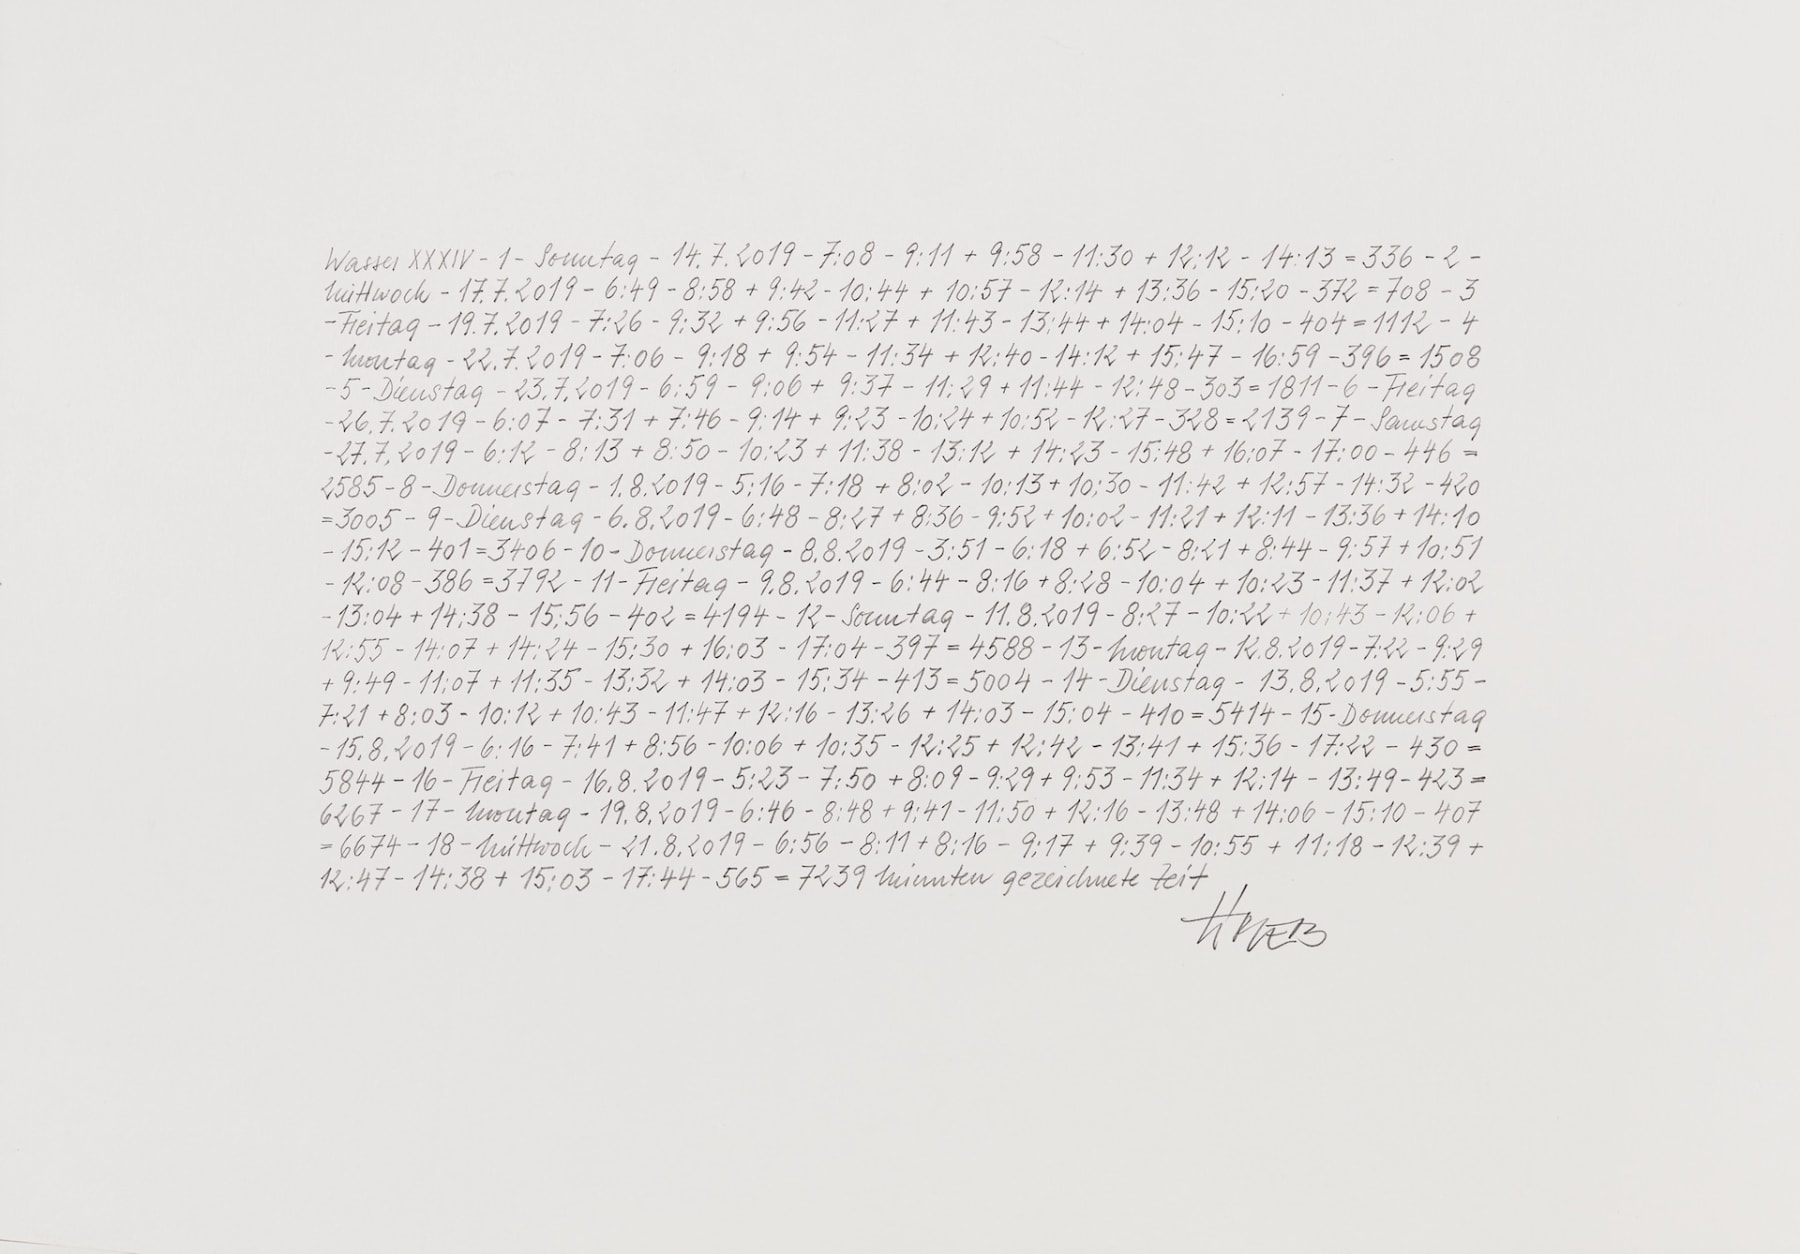 Wasser XXXIV - 1 - Sonntag - 14.7.2019 - 7:08 - 9:11 + 9:58 - 11:30 + 12:12 - 14:13 = 336 - 2 -
Mittwoch - 17.7.2019 - 6:49 - 8:58 + 9:42 - 10:44 + 10:57 - 12:14 + 13:36 - 15:20 - 372 = 708 - 3
- Freitag - 19.7.2019 - 7:26 - 9:32 + 9:56 - 11:27 + 11:43 - 13:44 + 14:04 - 15:10 - 404 = 1112 - 4
- Montag - 22.7.2019 - 7:06 - 9:18 + 9:54 - 11:34 + 12:40 - 14:12 + 15:47 - 16:59 - 396 = 1508
- 5 - Dienstag - 23.7.2019 - 6:59 - 9:06 + 9:37 - 11:29 + 11:44 - 12:48 - 303 = 1811 - 6 - Freitag
- 26.7.2019 - 6:07 - 7:31 + 7:46 - 9:14 + 9:23 - 10:24 + 10:52 - 12:27 - 328 = 2139 - 7 - Samstag
- 27.7.2019 - 6:12 - 8:13 + 8:50 - 10:23 + 11:38 - 13:12 + 14:23 - 15:48 + 16:07 - 17:00 - 446 =
2585 - 8 - Donnerstag - 1.8.2019 - 5:16 - 7:18 + 8:02 - 10:13 + 10:30 - 11:42 + 12:57 - 14:32 - 420
= 3005 - 9 - Dienstag - 6.8.2019 - 6:48 - 8:27 + 8:36 - 9:52 + 10:02 - 11:21 + 12:11 - 13:36 + 14:10
- 15:12 - 401 = 3406 - 10 - Donnerstag - 8.8.2019 - 3:51 - 6:18 + 6:52 - 8:21 + 8:44 - 9:57 + 10:51
- 12:08 - 386 = 3792 - 11 - Freitag - 9.8.2019 - 6:44 - 8:16 + 8:28 - 10:04 + 10:23 - 11:37 + 12:02
- 13:04 + 14:38 - 15:56 - 402 = 4194 - 12 - Sonntag - 11.8.2019 - 8:27 - 10:22 + 10:43 - 12:06 +
12:55 - 14:07 + 14:24 - 15:30 + 16:03 - 17:04 - 397 = 4588 - 13 - Montag - 12.8.2019 - 7:22 - 9:29
+ 9:49 - 11:07 + 11:35 - 13:32 + 14:03 - 15:34 - 413 = 5004 - 14 - Dienstag - 13.8.2019 - 5:55 -
7:21 + 8:03 - 10:12 + 10:43 - 11:47 + 12:16 - 13:26 + 14:03 - 15:04 - 410 = 5414 - 15 - Donnerstag
- 15.8.2019 - 6:16 - 7:41 + 8:56 - 10:06 + 10:35 - 12:25 + 12:42 - 13:41 + 15:36 - 17:22 - 430 =
5844 - 16 - Freitag - 16.8.2019 - 5:23 - 7:50 + 8:09 - 9:29 + 9:53 - 11:34 + 12:14 - 13:49 - 423 =
6267 - 17 - Montag - 19.8.2019 - 6:46 - 8:48 + 9:41 - 11:50 + 12:16 - 13:48 + 14:06 - 15:10 - 407
= 6674 - 18 - Mittwoch - 21.8.2019 - 6:56 - 8:11 + 8:16 - 9:17 + 9:39 - 10:55 + 11:18 - 12:39 +
12:47 - 14:38 + 15:03 - 17:44 - 565 = 7239 Minuten gezeichnete Zeit